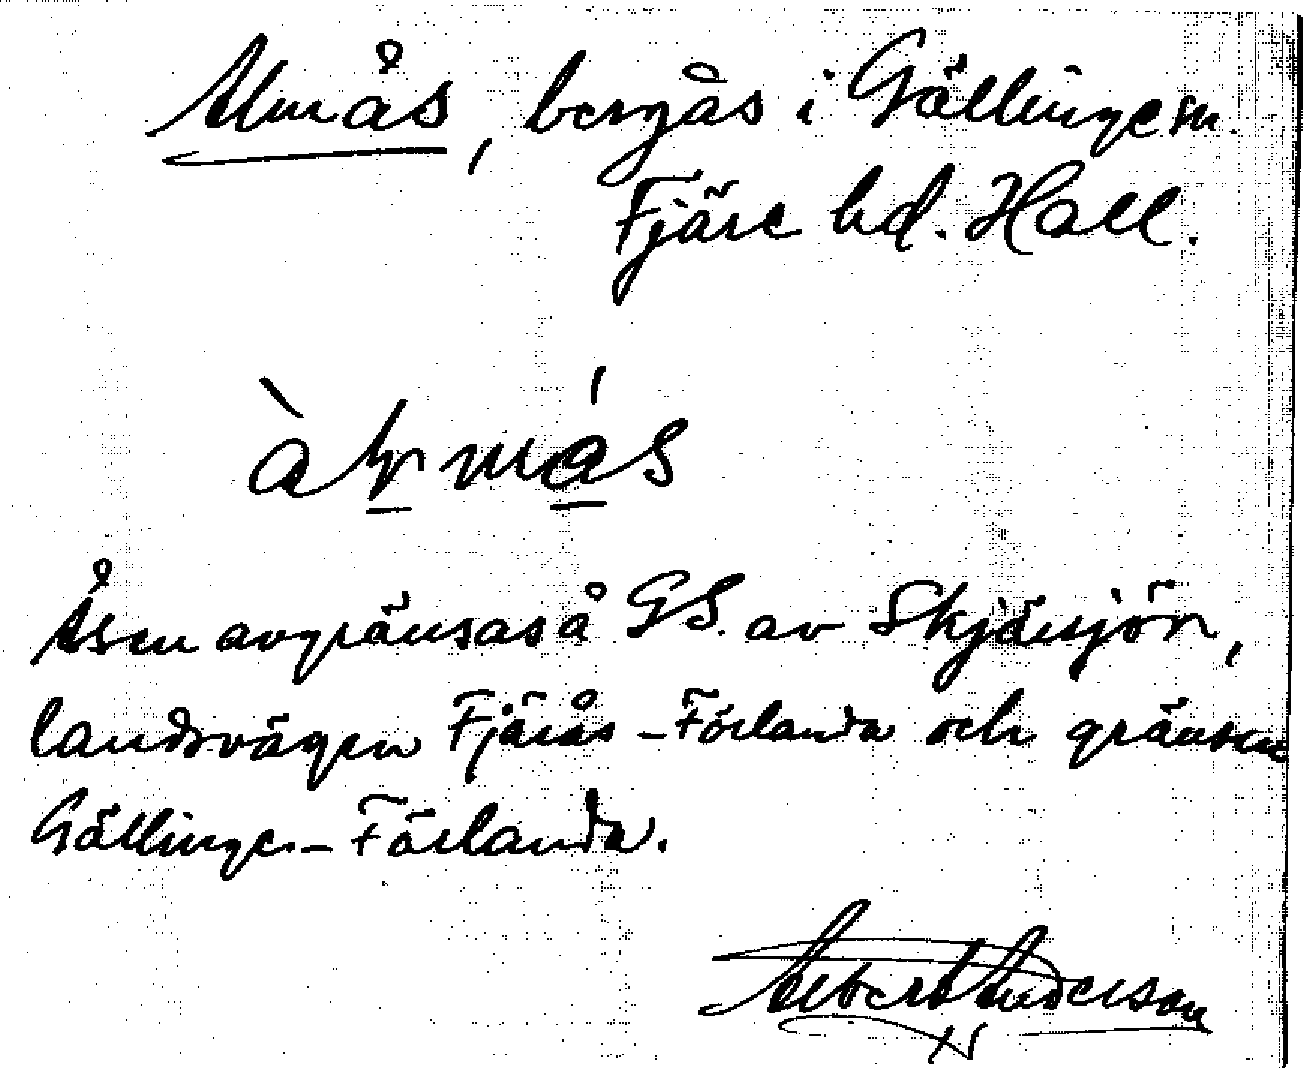 Almås, bergås i Gällinge sn.
Fjäre hd. Hall.
Åsen avgränsas å GS. av Skjärsjön,
landsvägen Fjärås - Förlanda och gränsen
Gällinge - Förlanda.
Albert Anderson